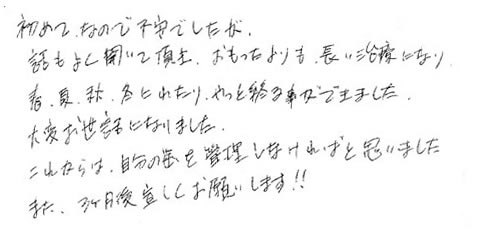 初めて、なので不安でしたが、
話もよく聞いて頂き、おもったよりも、長い治療になり、
春、夏、秋、冬にわたり、やっと終る事ができました。
大変お世話になりました。
これからは、自分の歯を管理しなければと思いました
また、3ヶ月後宜しくお願いします!!